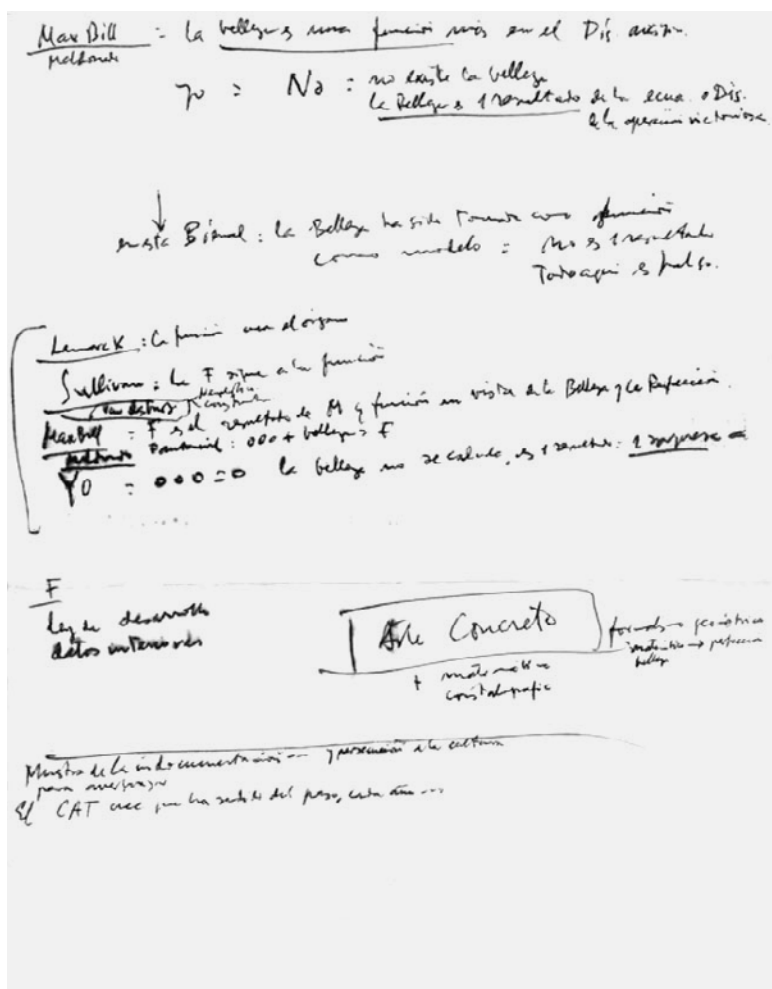 Max Bill = la belleza es una función más en el Dis.
Maldonado
yo = No = no existe la belleza
la Belleza es 1 resultado de la ecua. o Dis.
de la operación victoriosa
en esta Bienal : la Belleza ha sido tomada como función
como modelo = No es 1 resultado
Todo aquí es falso.
Lamarck : la función crea el órgano
Sullivan : la F sigue a la función
Van de Velde
Max Bill = F es el resultado de M y función en vista de la Belleza y la Perfección.
Maldonado : 000 + belleza = F
Yo = 000 = 0 la belleza no se calcula, es 1 resultado : 1 sorpresa
F
Ley de desarrollo
datos interiores
Arte Concreto
formal → geométrico
matemático → perfección
belleza
+ matemático
Muestra de la indocumentación -- y persecución de la cultura
para avergonzar
El CAT cree que ha salido del paso, cada año ---